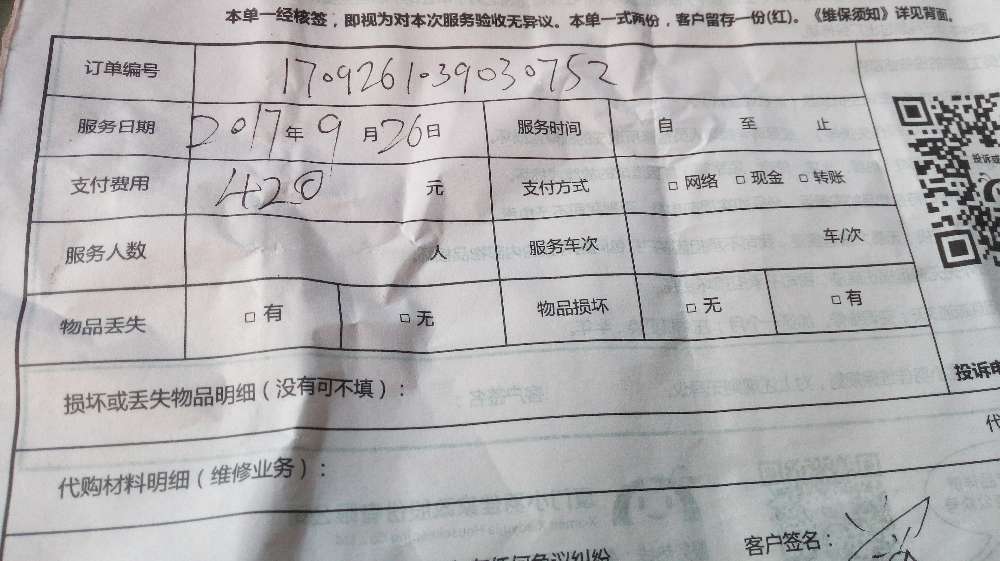 本单一经核签，即视为对本次服务验收无异议。本单一式两份，客户留存一份(红)。《维保须知》详见背面。
订单编号 1709261039030752
服务日期 2017年9月26日 服务时间 自 至 止
支付费用 420 元 支付方式 □ 网络 □ 现金 □ 转账
服务人数 人 服务车次 车/次
物品丢失 □ 有 □ 无 物品损坏 □ 无 □ 有
投诉
损坏或丢失物品明细（没有可不填）：
投诉电
代
代购材料明细（维修业务）：
任何争议纠纷
客户签名：